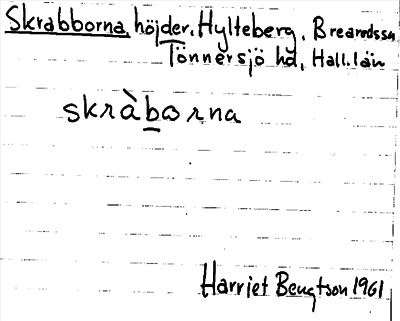 Skrabborna, höjder. Hylteberg, Breareds sn
Tönnersjö hd, Hall. län
skràbορna
Harriet Bengtson 1961